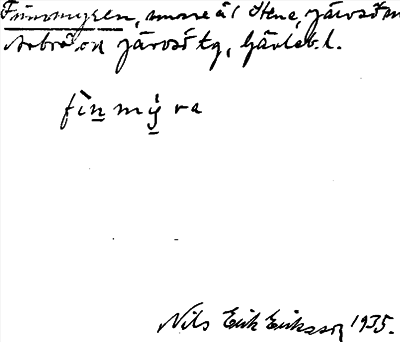 Finnmyren, mosse å Stene, Järvsö m
Arbrå o Järvsö tg, Gävleb. l.
fìn mý ra
Nils Erik Eriksson 1935.